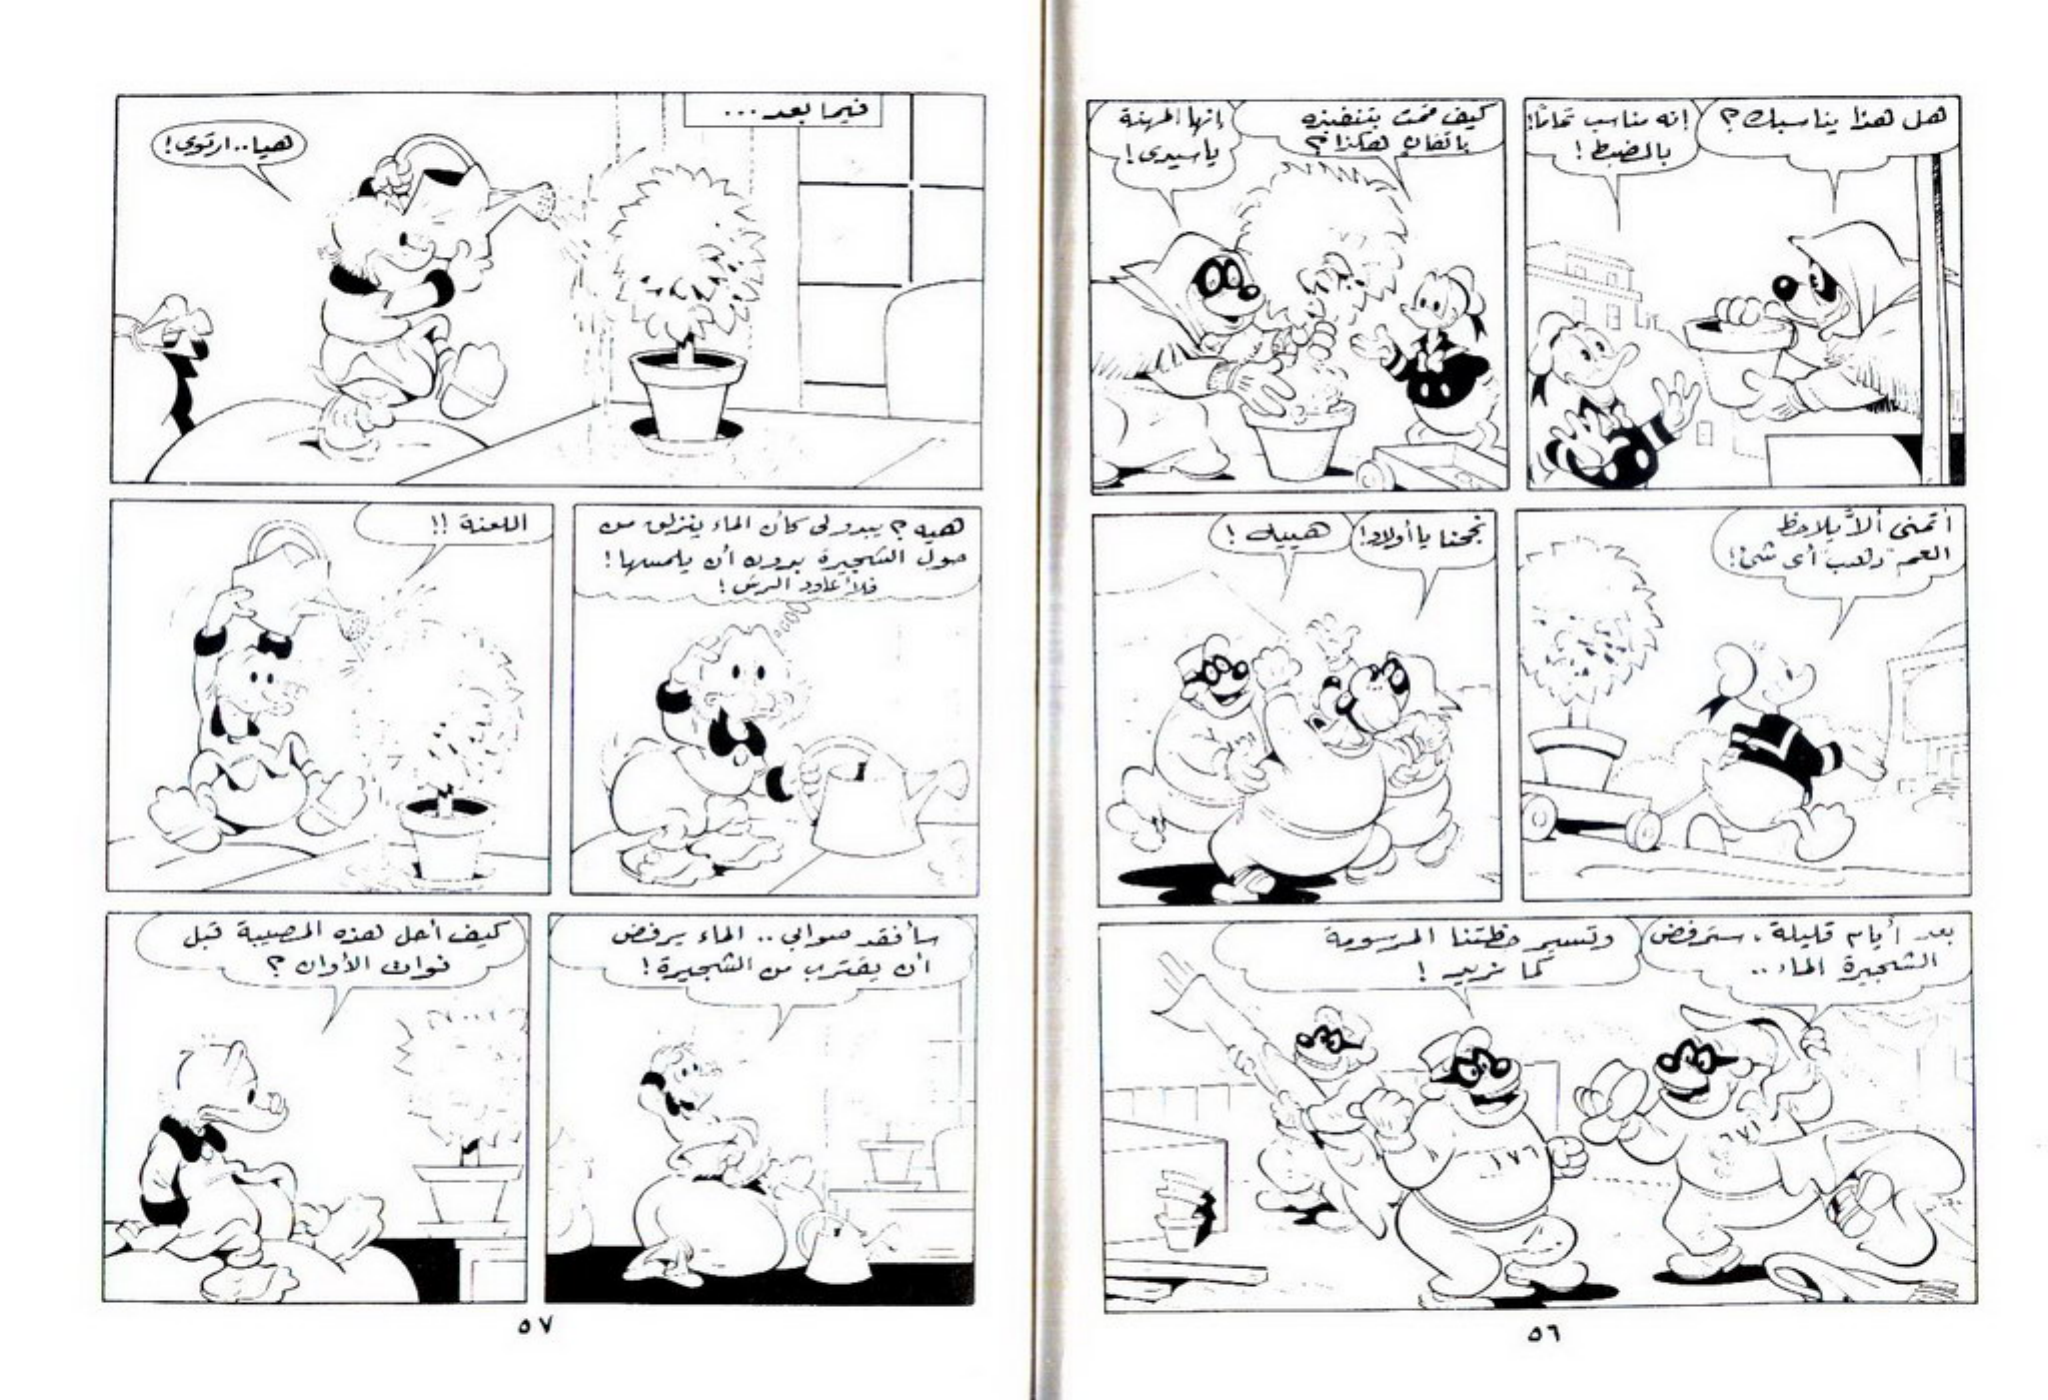 هل هذا يناسبك؟
إنه مناسب تمامًا!
بالضبط!
كيف قمت بتنفيذه
باتقان هكذا؟
إنها المهنة
ياسيدى!
أتمنى ألاَّ يلاحظ
العم "دهب" أى شئ!
نجحنا يا أولاد!
هييييه!
بعد أيام قليلة، سترفض
الشجيرة الماء..
وتسير خطتنا المرسومة
كما نريد!
٦٧١
١٧٦
٥٦
فيما بعد...
هيا.. ارتوى!
هيه؟ يبدو لى كأن الماء ينزلق من
حول الشجيرة بدون أن يلمسها!
فلأعاود الرش!
اللعنة!!
سأفقد صوابي.. الماء يرفض
أن يقترب من الشجيرة!
كيف أحل هذه المصيبة قبل
فوات الأوان؟
٥٧